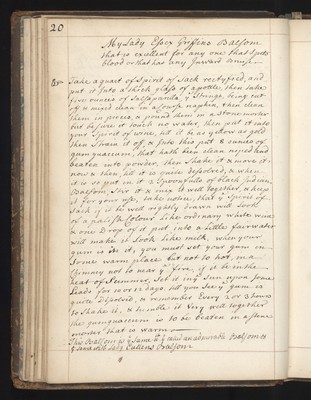 20
My Lady Essex Griffens Balsom
that is excellent for any one that spitts
blood or that has any Inward bruise
Take a quart of spirit of Sack rectyfied, and
put it Into a thick glass of a pottle, then take
five ounces of Salsaparila, y Strings, being cut
off & wiped clean in a course napkin, then slice
them in pieces, & pound them in a stone morter
but be sure it touch no water, then put it into
your Spirit of wine, let it be as yellow as gold
then Strain it off & Into this put 8 ounces of
gum guaiacum, that hath been clean wiped and
beaten into powder, then Shake it & move it
now & then, till it is quite dessolved, & when
it is so put in it a spoonfulls of black Indian
Balsom, Stir it & mix it well together, & keep
it for your use, take notice, that y Spirit of
Sack if it be well rightly drawn will look
of a palish Colour Like ordinary white wine
& one Drop of it put into a Little fair water
will make it Look Like milk, when your
gum is in it, you must set your gum in
Some warm place but not to hot, in a
Chimney not to near y fire, if it be in the
heat of Summer, Set it in y Sun upon some
Leads for 10 or 12 days, till you see y gum is
quite Disolved, & remember Every 2 or 3 hours
to Shake it, & mingle it Very well together
the gumguaiacum is to be beaten in a stone
morter that is warm
This Balsom is y Same
Lady Cullens Balsom